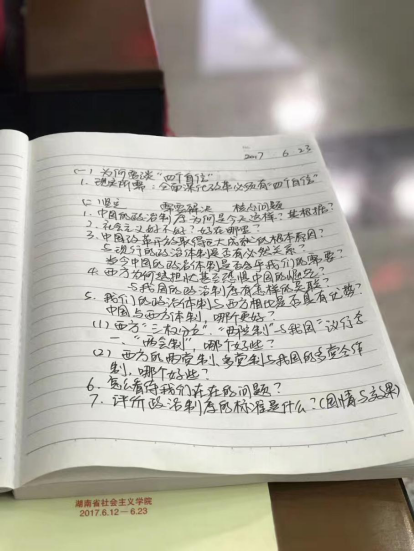 2017.6.23
(一) 为何要谈“四个自信”
1. 现实所需：全面深化改革必须有“四个自信”
需要解决 核心问题
1. 中国的政治制度为何是今天这样？其根据？
2. 社会主义好不好？好在哪里？
3. 中国改革开放取得巨大成就的根本原因？
与现行的政治体制是否有必然关系？
当今中国的政治体制是否合乎我们的需要？
4. 西方为何
与我国的政治制度有怎样的
5. 我们的政治体制与西方相比是否具有优势？
中国与西方体制，哪个更好？
(1) 西方“三权分立”、“两院制”与我国“议行合
一”、“两会制”，哪个好些？
(2) 西方的两党制、多党制与我国的多党合作
制，哪个好些？
6. 怎么看待我们存在的问题？
7. 评价政治制度的标准是什么？(国情与效果)
湖南省社会主义学院
2017.6.12—6.23